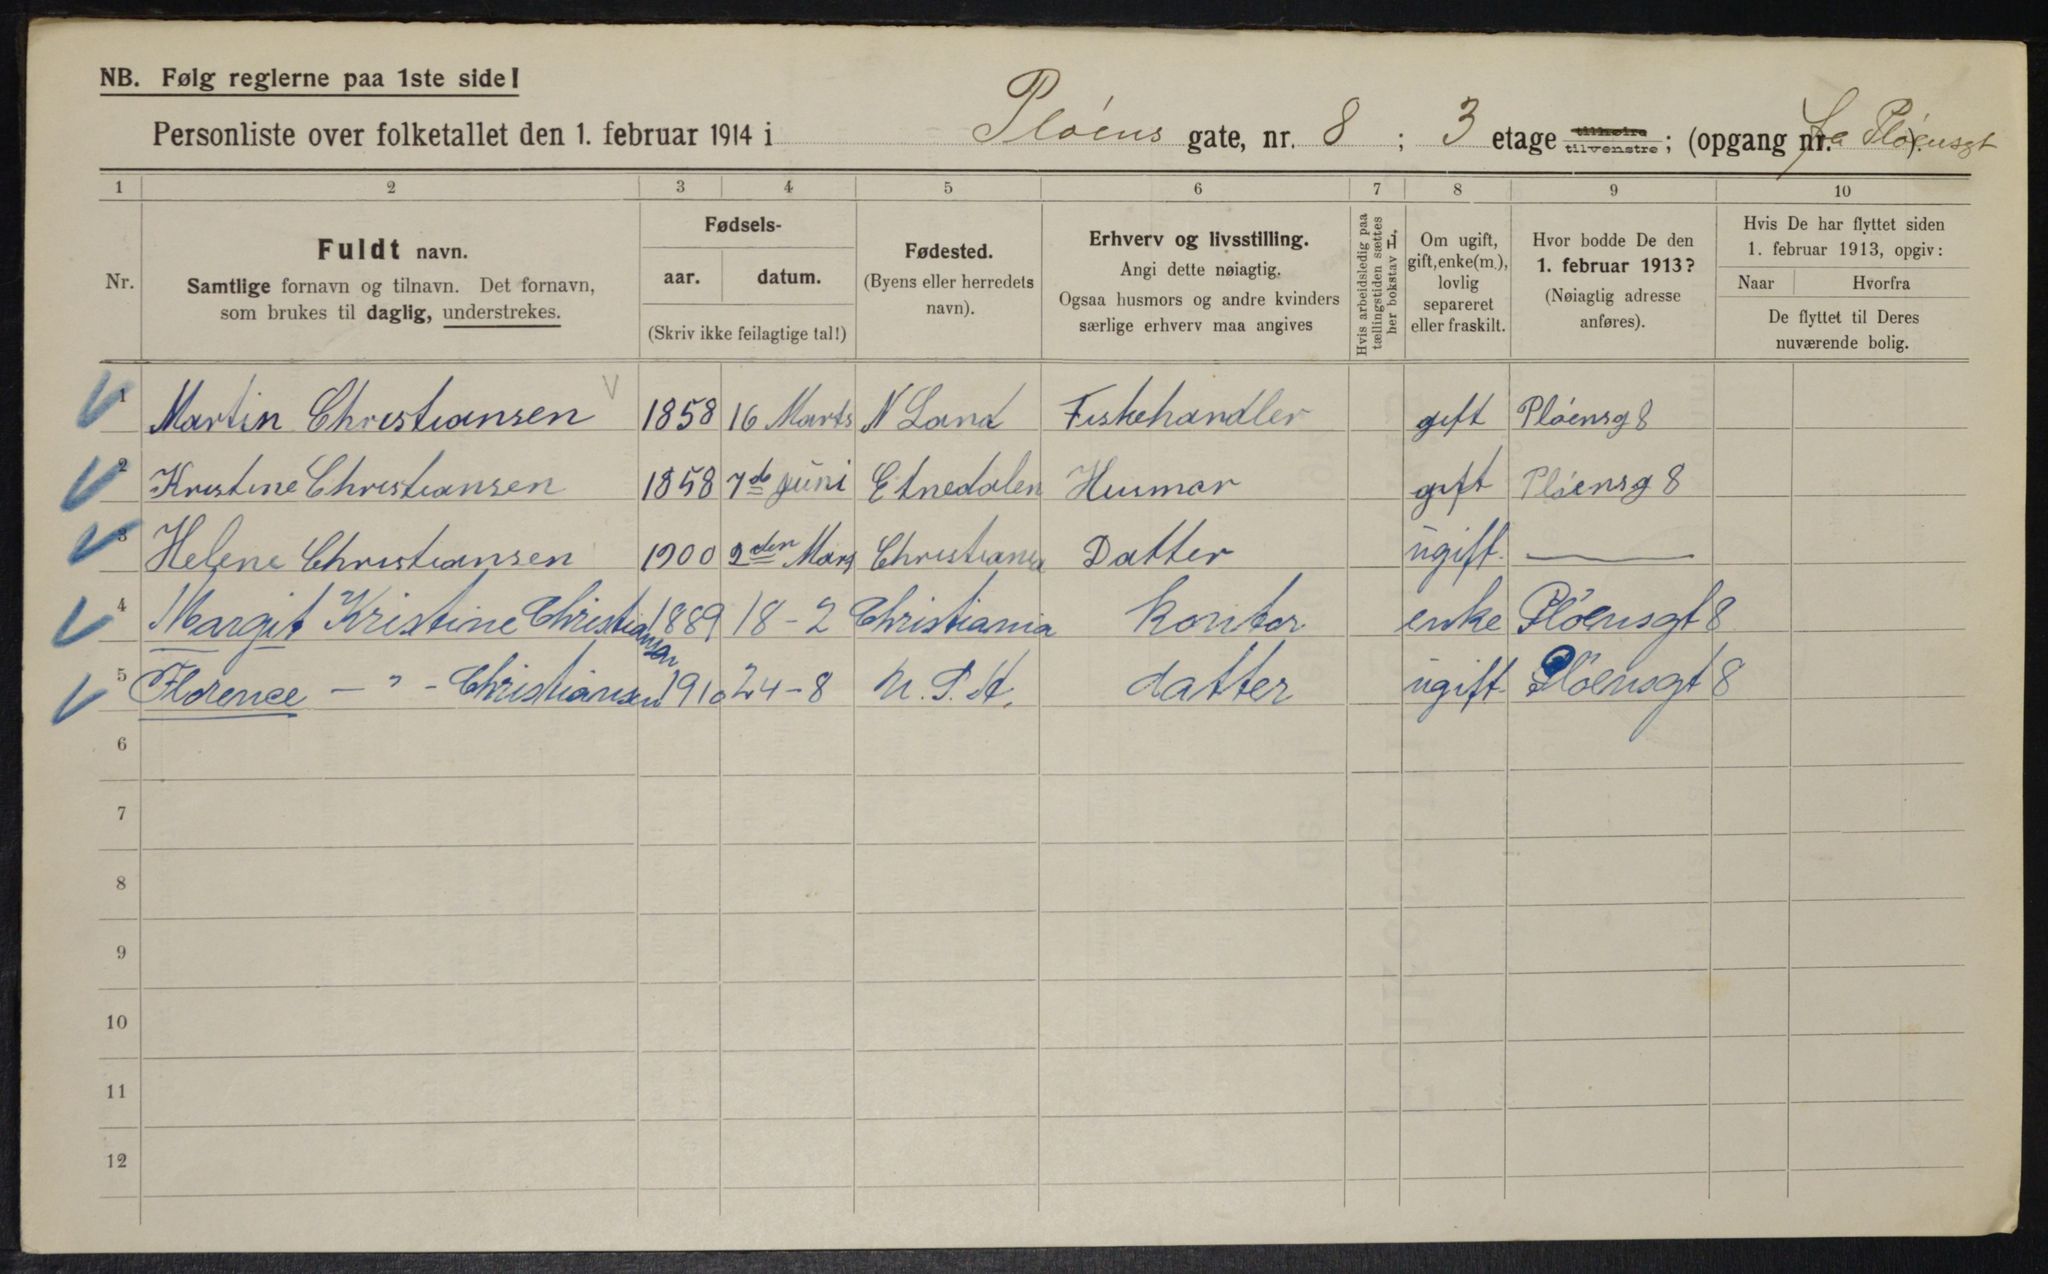 NB. Følg reglerne paa 1ste side!
Personliste over folketallet den 1. februar 1914 i Plöens gate, nr. 8 ; 3 etage tilhøire tilvenstre ; (opgang nr. Plöensgt ).
1 2 3 4 5 6 7 8 9 10
Nr.
Fuldt navn.
Samtlige fornavn og tilnavn. Det fornavn,
som brukes til daglig, understrekes.
Fødsels-
aar. datum.
(Skriv ikke feilagtige tal!)
Fødested.
(Byens eller herredets
navn).
Erhverv og livsstilling.
Angi dette nøiagtig.
Ogsaa husmors og andre kvinders
særlige erhverv maa angives
Hvis arbeidsledig paa
tællingstiden sættes
her bokstav L.
Om ugift,
gift, enke(m.),
lovlig
separeret
eller fraskilt.
Hvor bodde De den
1. februar 1913?
(Nøiagtig adresse
anføres).
Hvis De har flyttet siden
1. februar 1913, opgiv:
Naar Hvorfra
De flyttet til Deres
nuværende bolig.
1 Martin Christiansen 1858 16 Marts N Land Fiskehandler gift Plöensg 8
2 Kristine Christiansen 1858 7de juni Etnedalen Husmor gift Plöensg 8
3 Helene Christiansen 1900 2den Mars Christiania Datter ugift. —
4 Margit Kristine Christiansen 1889 18-2 Christiania kontor enke Plöensgt 8
5 Florence - " - Christiansen 1910 24-8 U.S.A. datter ugift. Plöensgt 8
6
7
8
9
10
11
12